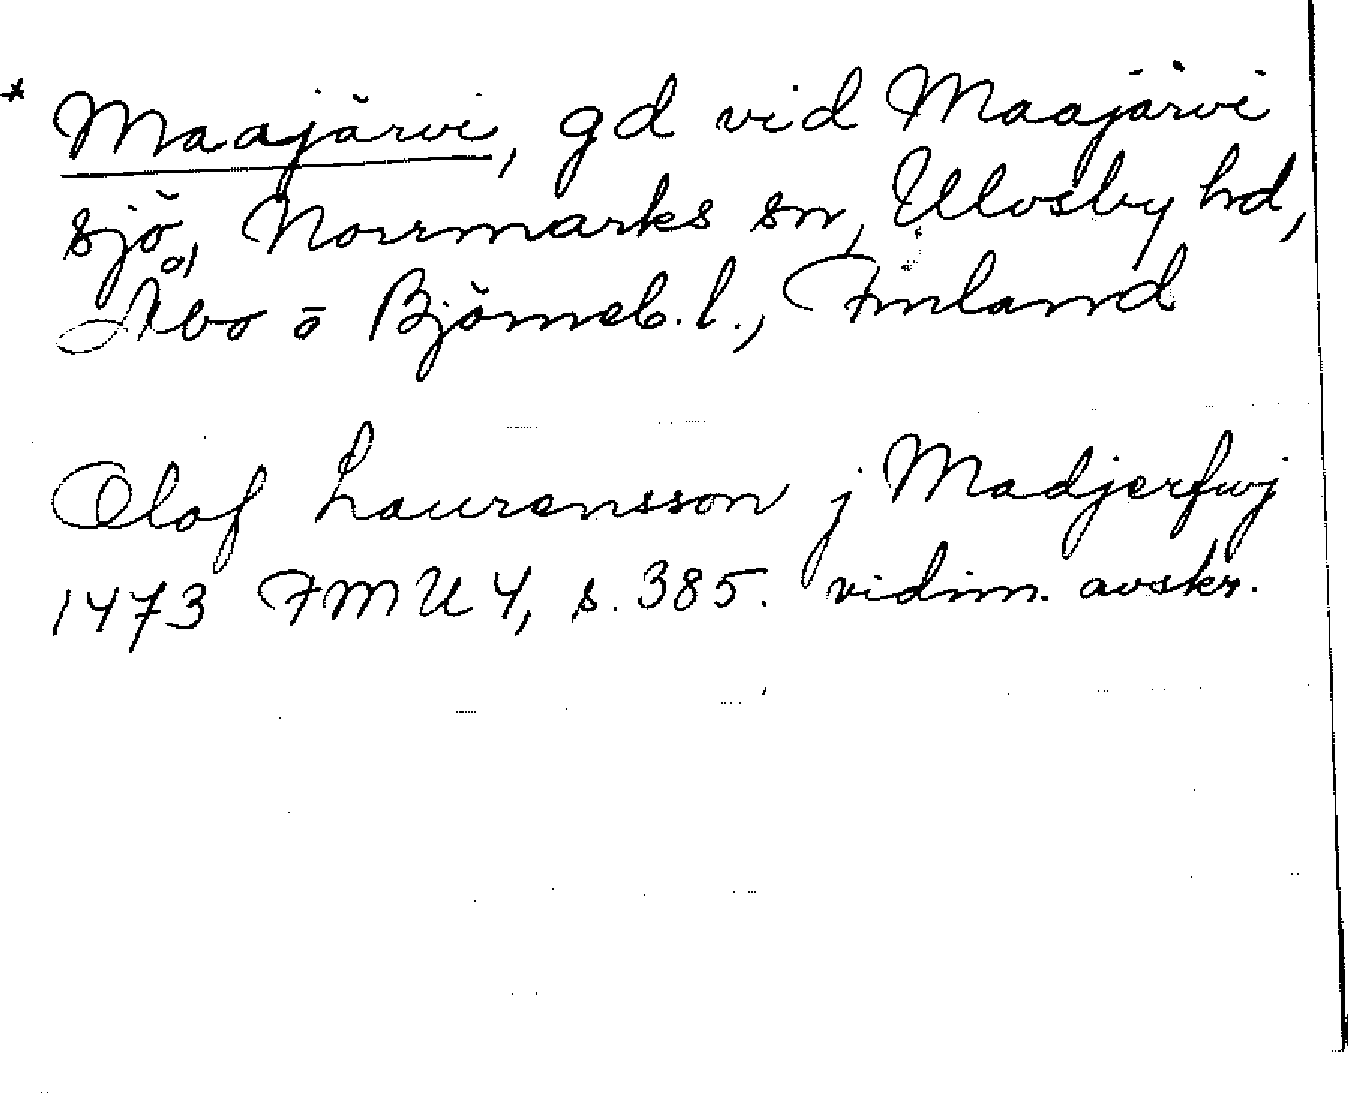 * Maajärvi, gd vid Maajärvi
sjö, Norrmarks sn, Ulvsby hd,
Åbo o Björneb. l., Finland
Olaf Laurensson j Madjerfwj
1473 FMU 4, s. 385. vidim. avskr.